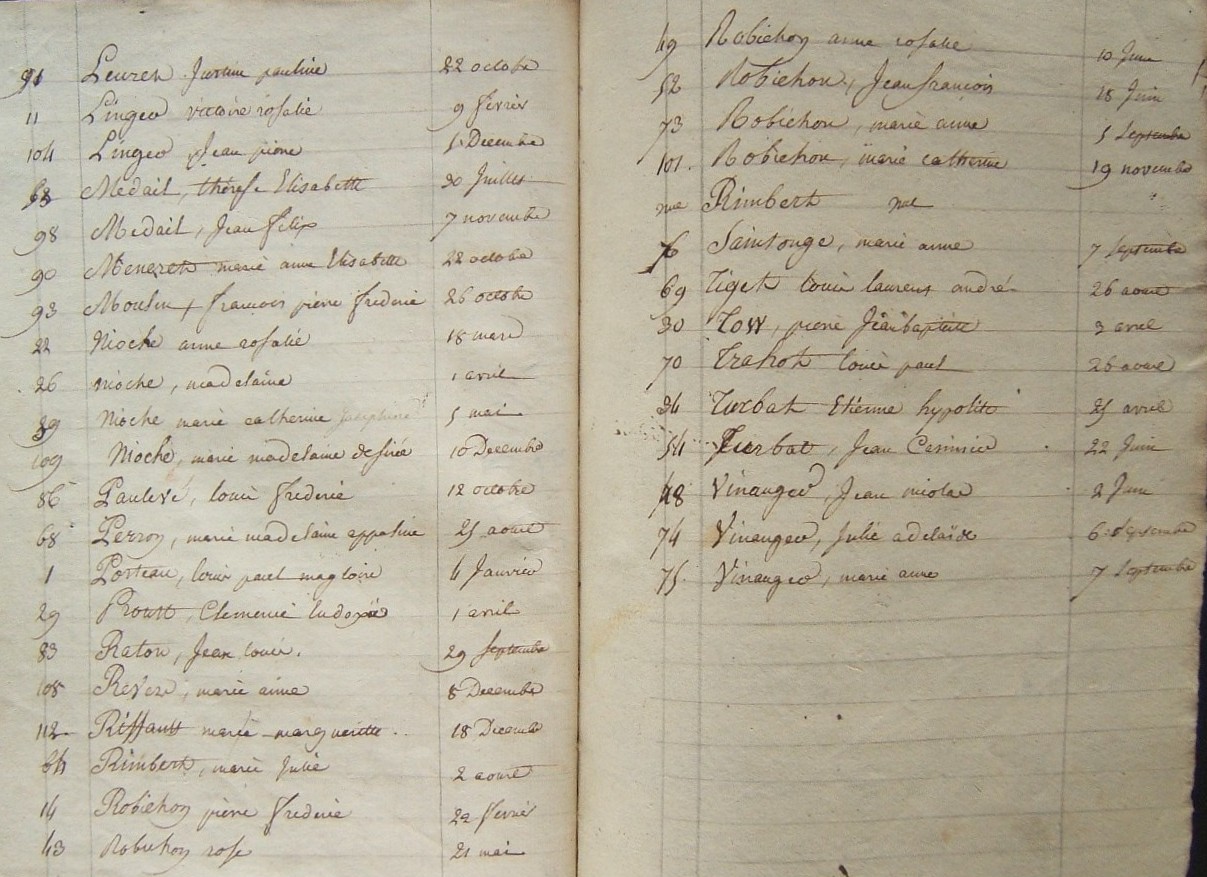 91 Leuret Justine pauline 22 octobre
11 Lingeo victoire rosalie 9 février
104 Lingeo Jean pierre 5 Decembre
Medail, thérese Elisabette 30 Juillet
98 Medail, Jean Félix 7 novembre
90 Meneret marie anne Elisabette 22 octobre
93 Moulin, françois pierre frederic 26 octobre
22 Nioche anne rosalie 18 mars
26 nioche, madelaine 1 avril
39 Nioche marie catherine Josephine 5 mai
109 Nioche, marie madelaine desirée 10 Decembre
86 Paulevé, louis frederic 12 octobre
68 Perron, marie madelaine appoline 25 aout
1 Porteau, louis paul magloire 4 Janvier
29 Proust, Clemence Eudoxie 1 avril
83 Raton, Jean louis. 29 Septembre
108 marie aimé 8 Decembre
112 Riffault marie marguerite 18 Decembre
64 Rimbert, marie Julie 2 aout
14 Robichon pierre frederic 22 février
43 Robichon rose 21 mai
49 Robichon anne rosalie 10 Juin
52 Robichon, Jean françois 18 Juin
73 Robichon, marie anne 5 Septembre
101. Robichon, marie catherine 19 novembre
Rimbert
76 Saintonge, marie anne 7 Septembre
69 Tiget louis laurent andré 26 aout
30 pierre Jean baptiste 3 avril
70 Trahot louis paul 26 aout
34 Turbat Etienne hypolite 25 avril
54 Turbat, Jean Casimir 22 Juin
48 Vinauger, Jean nicolas 2 Juin
74 Vinauger, Julie adelaïde 6 Septembre
75. Vinauger, marie anne 7 Septembre